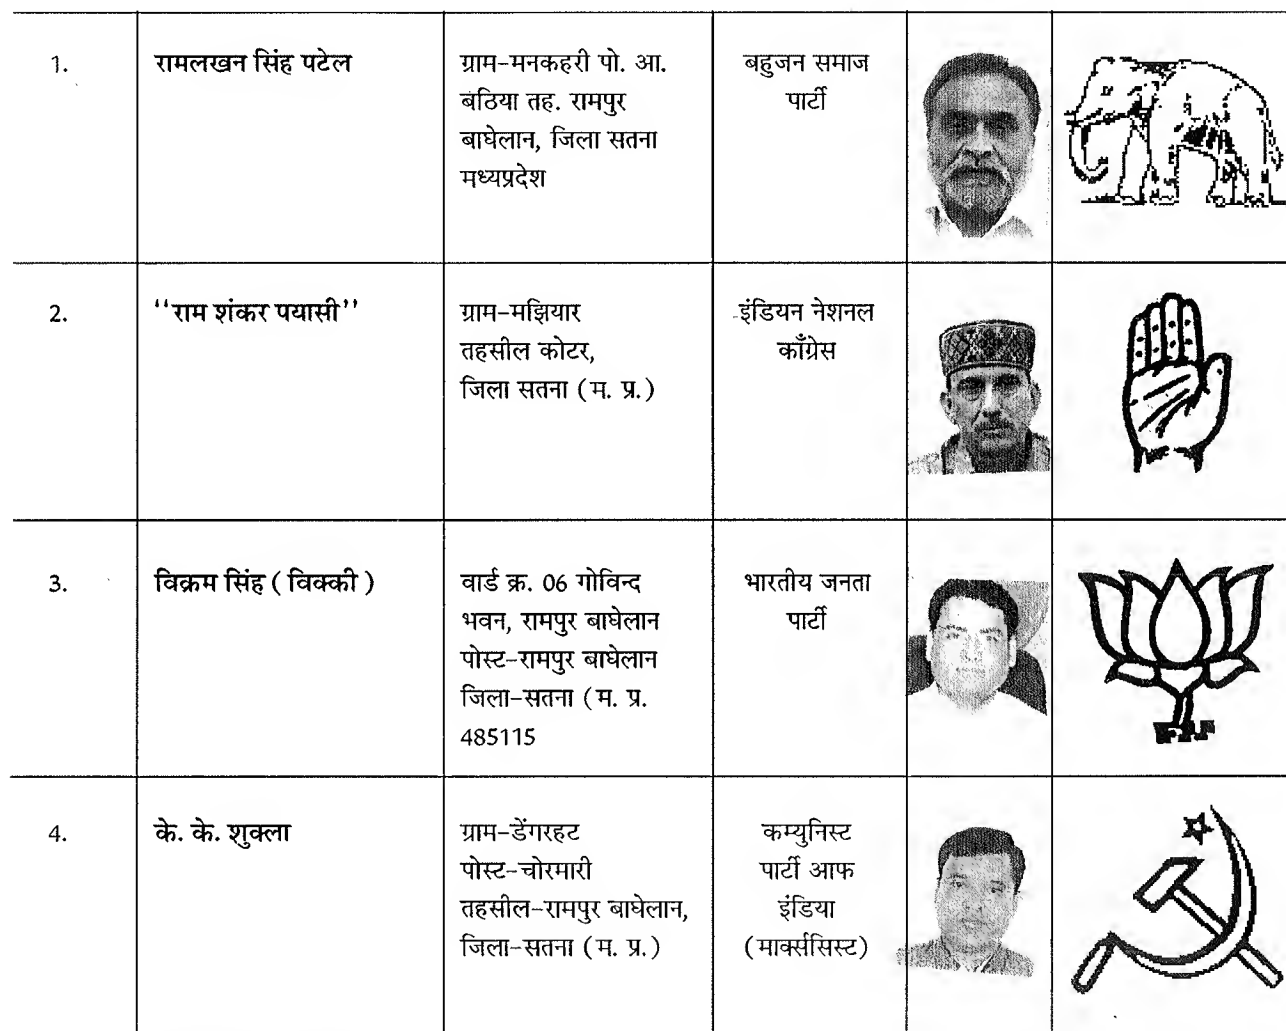 1.
रामलखन सिंह पटेल
ग्राम-मनकहरी पो. आ.
बठिया तह. रामपुर
बाघेलान, जिला सतना
मध्यप्रदेश
बहुजन समाज
पार्टी
2.
''राम शंकर पयासी''
ग्राम-मझियार
तहसील कोटर,
जिला सतना (म. प्र.)
इंडियन नेशनल
काँग्रेस
3.
विक्रम सिंह (विक्की)
वार्ड क्र. 06 गोविन्द
भवन, रामपुर बाघेलान
पोस्ट-रामपुर बाघेलान
जिला-सतना (म. प्र.
485115
भारतीय जनता
पार्टी
4.
के. के. शुक्ला
ग्राम-डेंगरहट
पोस्ट-चोरमारी
तहसील-रामपुर बाघेलान,
जिला-सतना (म. प्र.)
कम्युनिस्ट
पार्टी आफ
इंडिया
(मार्क्ससिस्ट)